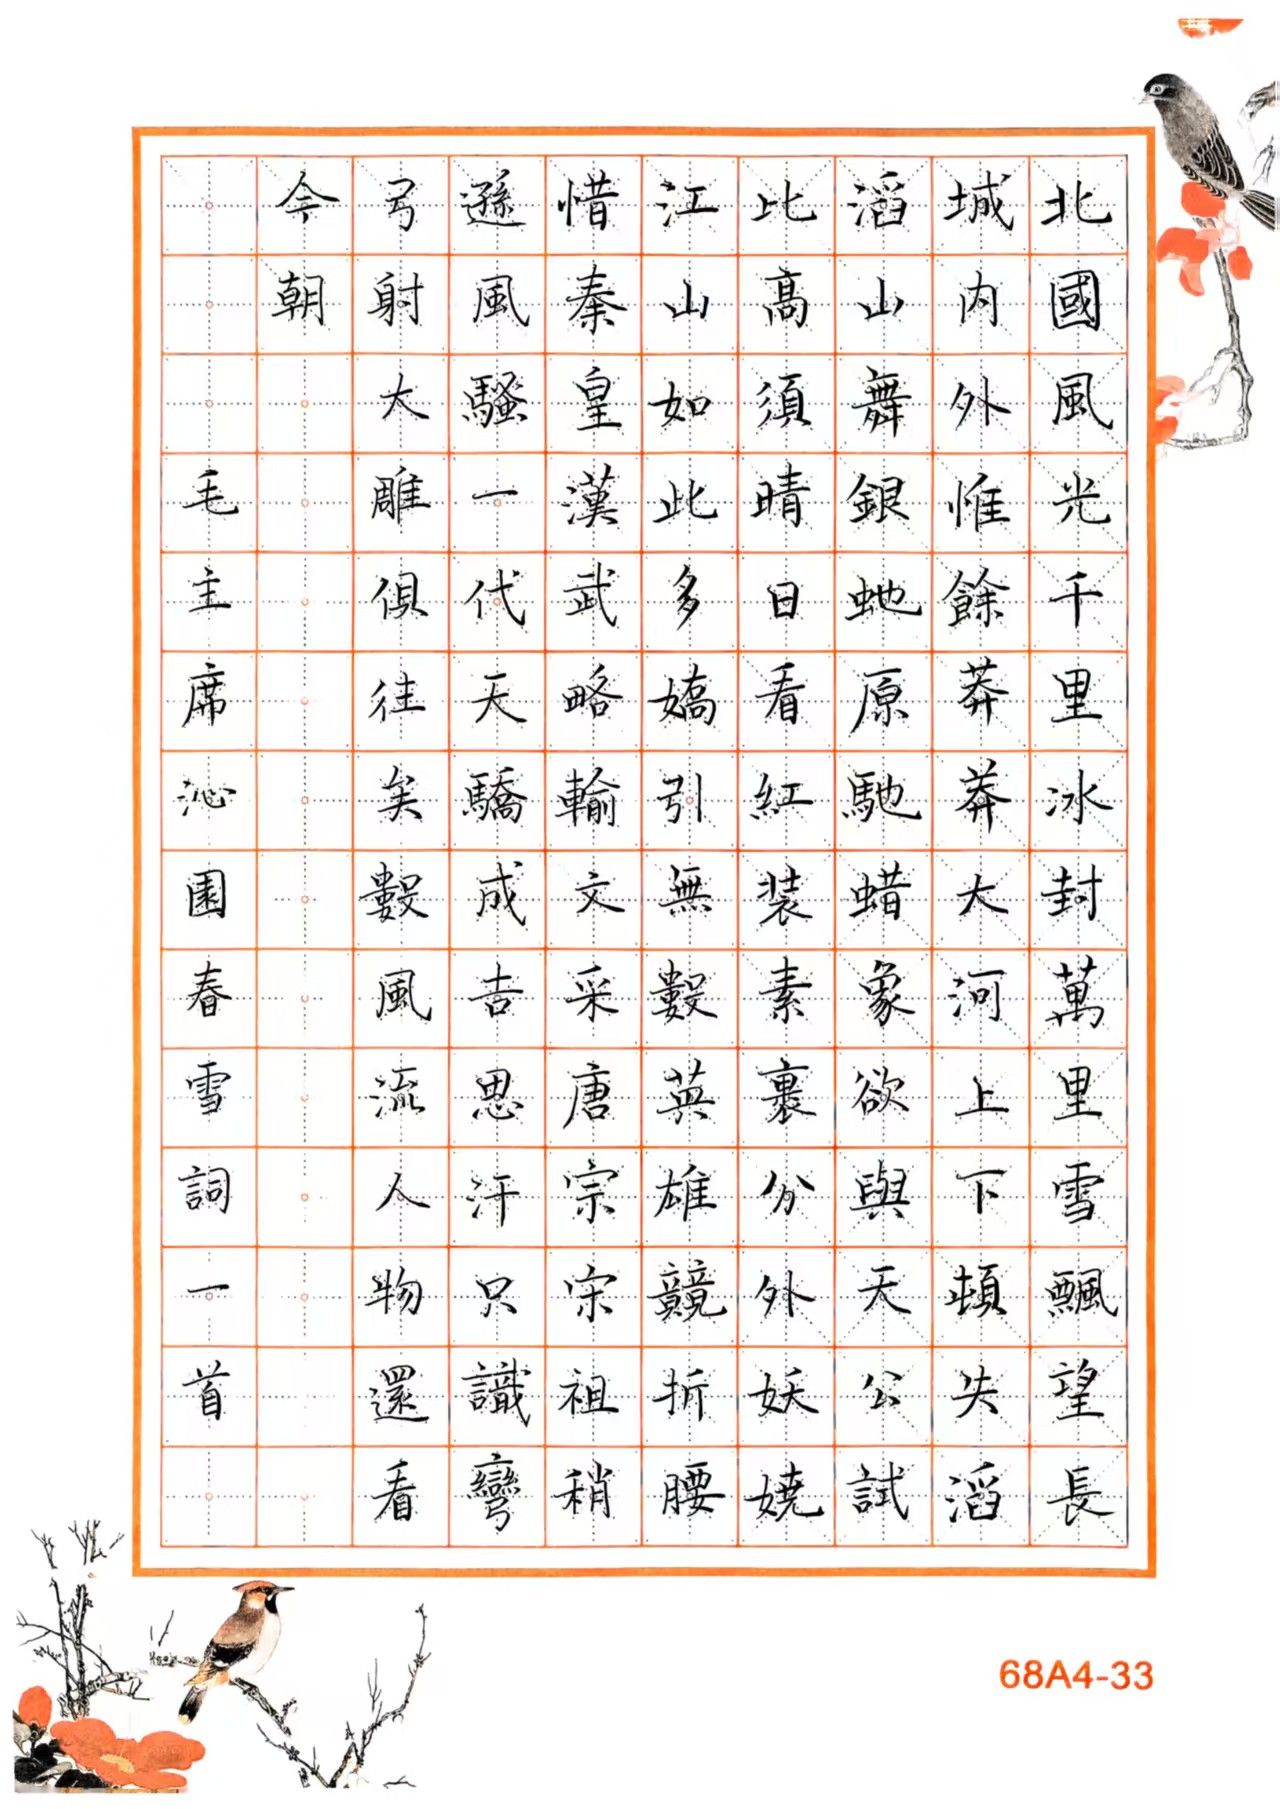 北國風光千里冰封萬里雪飄望長
城內外惟餘莽莽大河上下頓失滔
滔山舞銀虵原馳蜡象欲與天公試
比高須晴日看紅装素裹分外妖嬈
江山如此多嬌引無數英雄競折腰
惜秦皇漢武略輸文采唐宗宋祖稍
遜風騷一代天驕成吉思汗只識彎
弓射大雕俱往矣數風流人物還看
今朝
毛主席沁園春雪詞一首
68A4-33